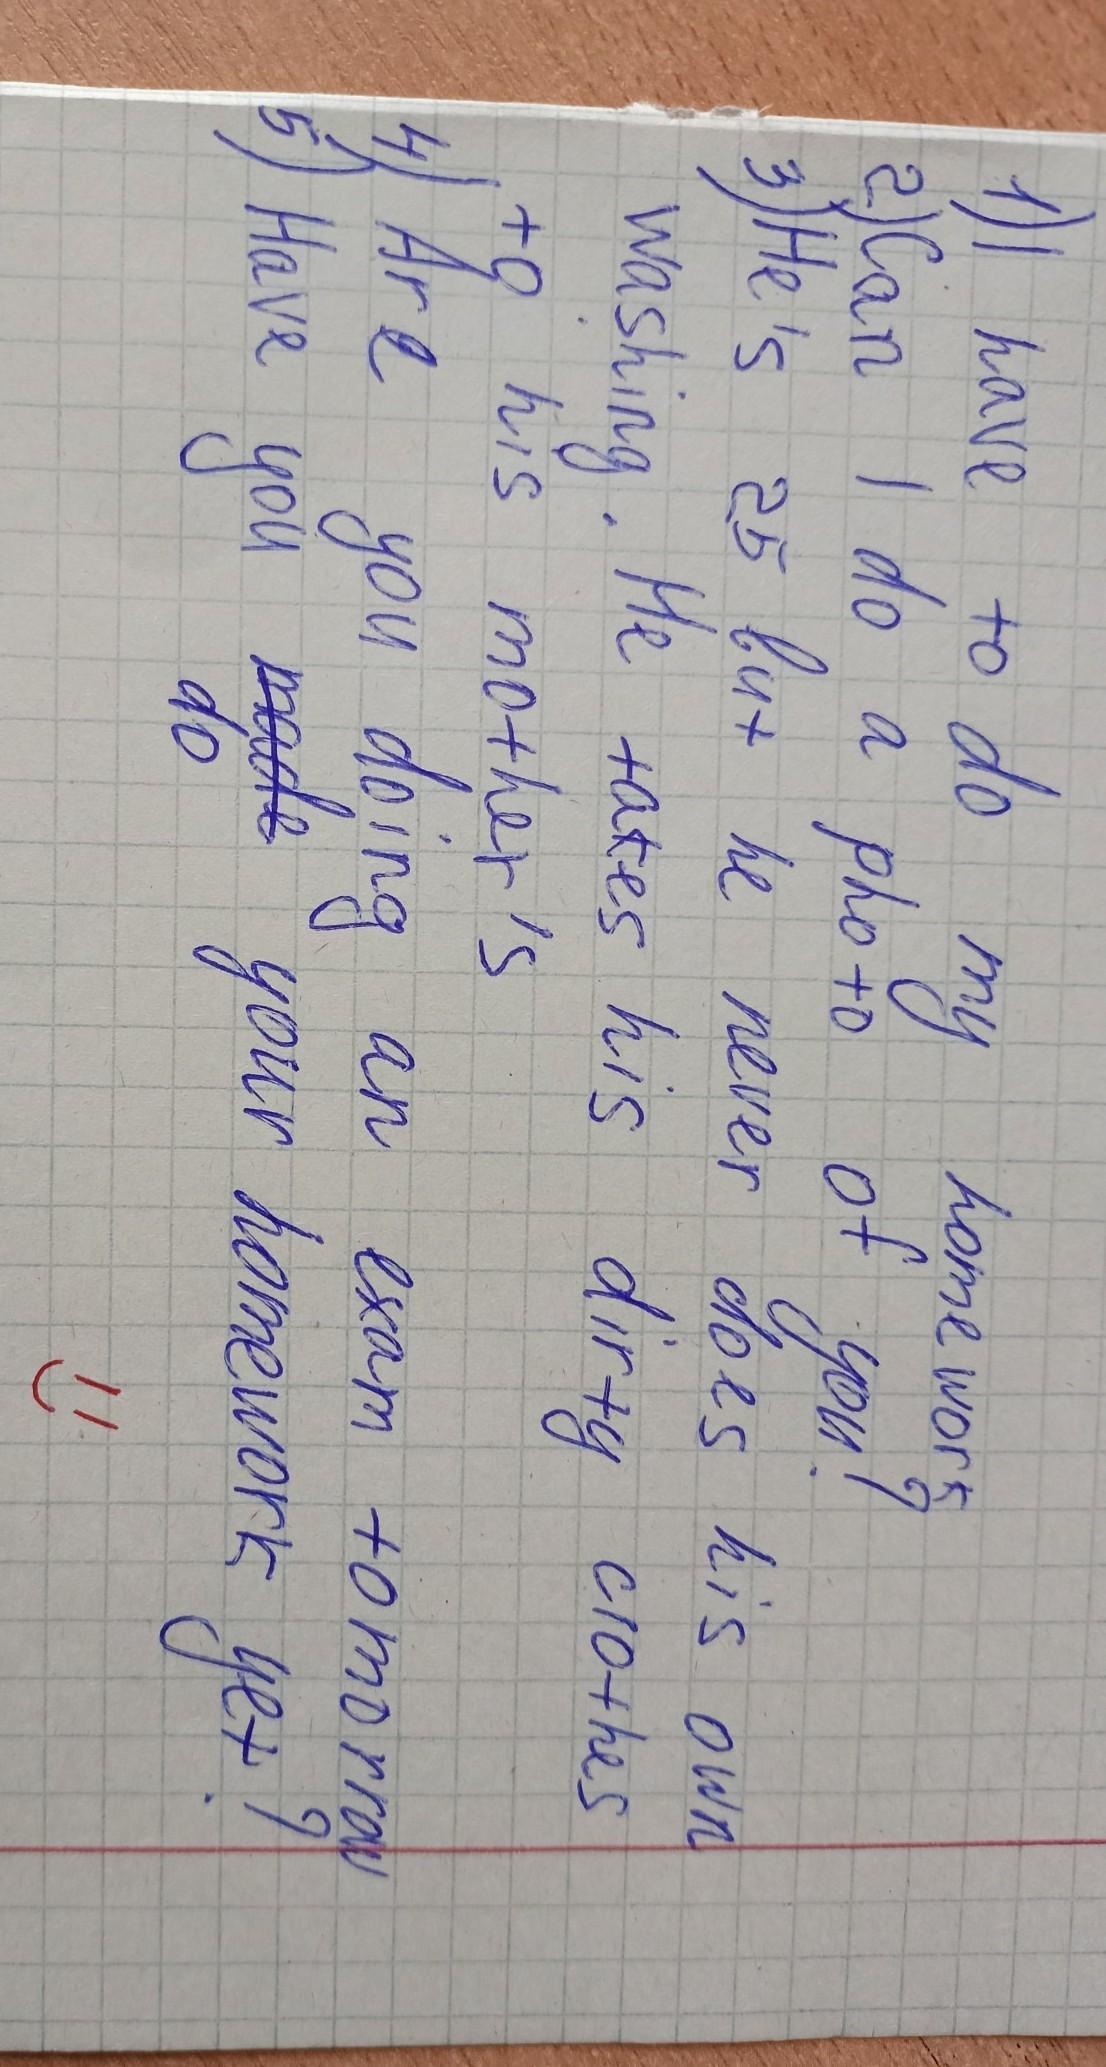 1) I have to do my homework
2) Can I do a photo of you?
3) He's 25 but he never does his own
washing. He takes his dirty clothes
to his mother's
4) Are you doing an exam tomorrow
5) Have you made your homework yet?
do